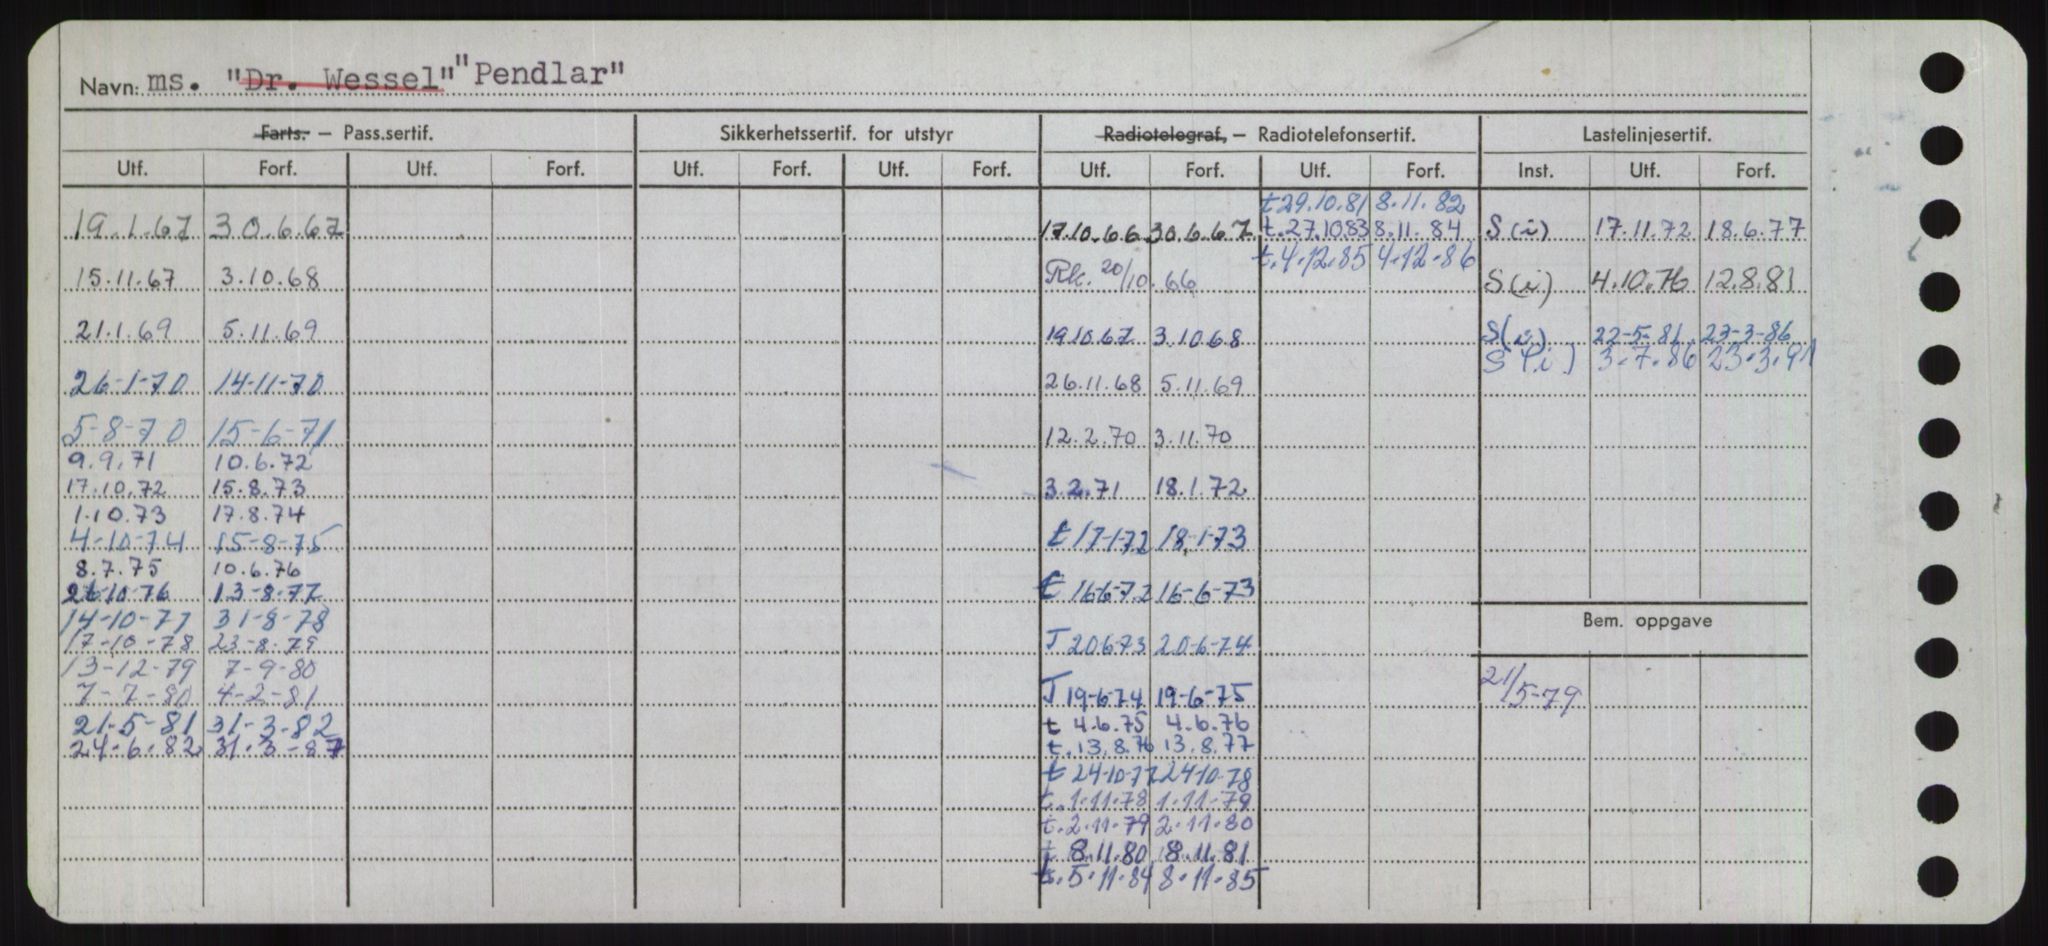 Navn: ms. "Dr. Wessel" "Pendlar"
Farts. – Pass.sertif. Sikkerhetssertif. for utstyr Radiotelegraf. – Radiotelefonsertif. Lastelinjesertif.
Utf. Forf. Utf. Forf. Utf. Forf. Utf. Forf. Utf. Forf. Utf. Forf. Inst. Utf. Forf.
19.1.67 30.6.67
15.11.67 3.10.68
21.1.69 5.11.69
26-1-70 14-11-70
5-8-70 15-6-71
9.9.71 10.6.72
17.10.72 15.8.73
1.10.73 17.8.74
4-10-74 15-8-75
8.7.75 10.6.76
26-10-76 13-8-77
14-10-77 31-8-78
17-10-78 23-8-79
13-12-79 7-9-80
7-7-80 4-2-81
21-5-81 31-3-82
24-6-82 31-3-87
17.10.66 30.6.67
Rk. 20/10.66
19.10.67 3.10.68
26.11.68 5.11.69
12.2.70 3.11.70
3.2.71 18.1.72
t 17-1-72 18-1-73
t 16-6-72 16-6-73
T 20673 20-6-74
T 19-6-74 19-6-75
t 4.6.75 4.6.76
t. 13.8.76 13.8.77
t 24-10-77 24-10-78
t. 1-11-78 1-11-79
t. 2-11-79 2-11-80
t 8.11.80 8.11.81
t. 5-11-84 8-11-85
t 29.10.81 8.11.82
t. 27.10.83 8.11.84
t. 4-12-85 4-12-86
S(i) 17.11.72 18.6.77
S(i) 4.10.76 12.8.81
S(i) 22-5-81 23-3-86
S(i) 3.7.86 23.3.91
Bem. oppgave
21/5-79